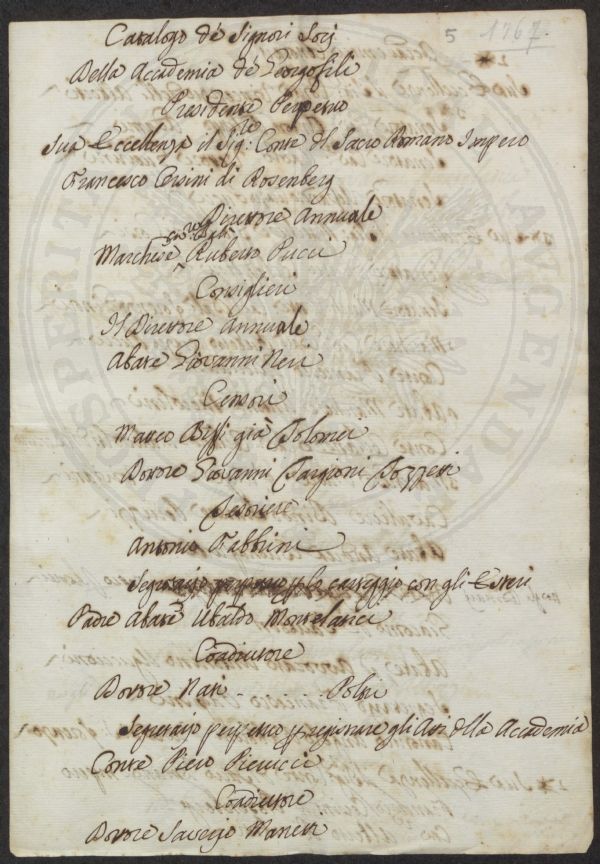 5 1767.
Catalogo de' Signori Socj
Della Accademia de' Georgofili
Presidente Perpetuo
Sua Eccellenza il Sig: Conte del Sacro Romano Impero
Francesco Orsini di Rosenberg
Direttore Annuale
Marchese Ruberto Pucci
Consiglieri
Il Direttore Annuale
Abate Giovanni Neri
Censori
Marco già Tolomei
Dottore Giovanni Targioni Tozzetti
Tesoriere
Antonio Fabbrini
Segretario carteggio con gli Esteri
Padre Abate Ubaldo Montelatici
Coadiutore
Dottore ......
Segretario perpetuo registrare gli Atti della Accademia
Conte Piero Pierucci
Coadiutore
Dottore Saverio Manetti
PROSPERITATI AVGENDAE